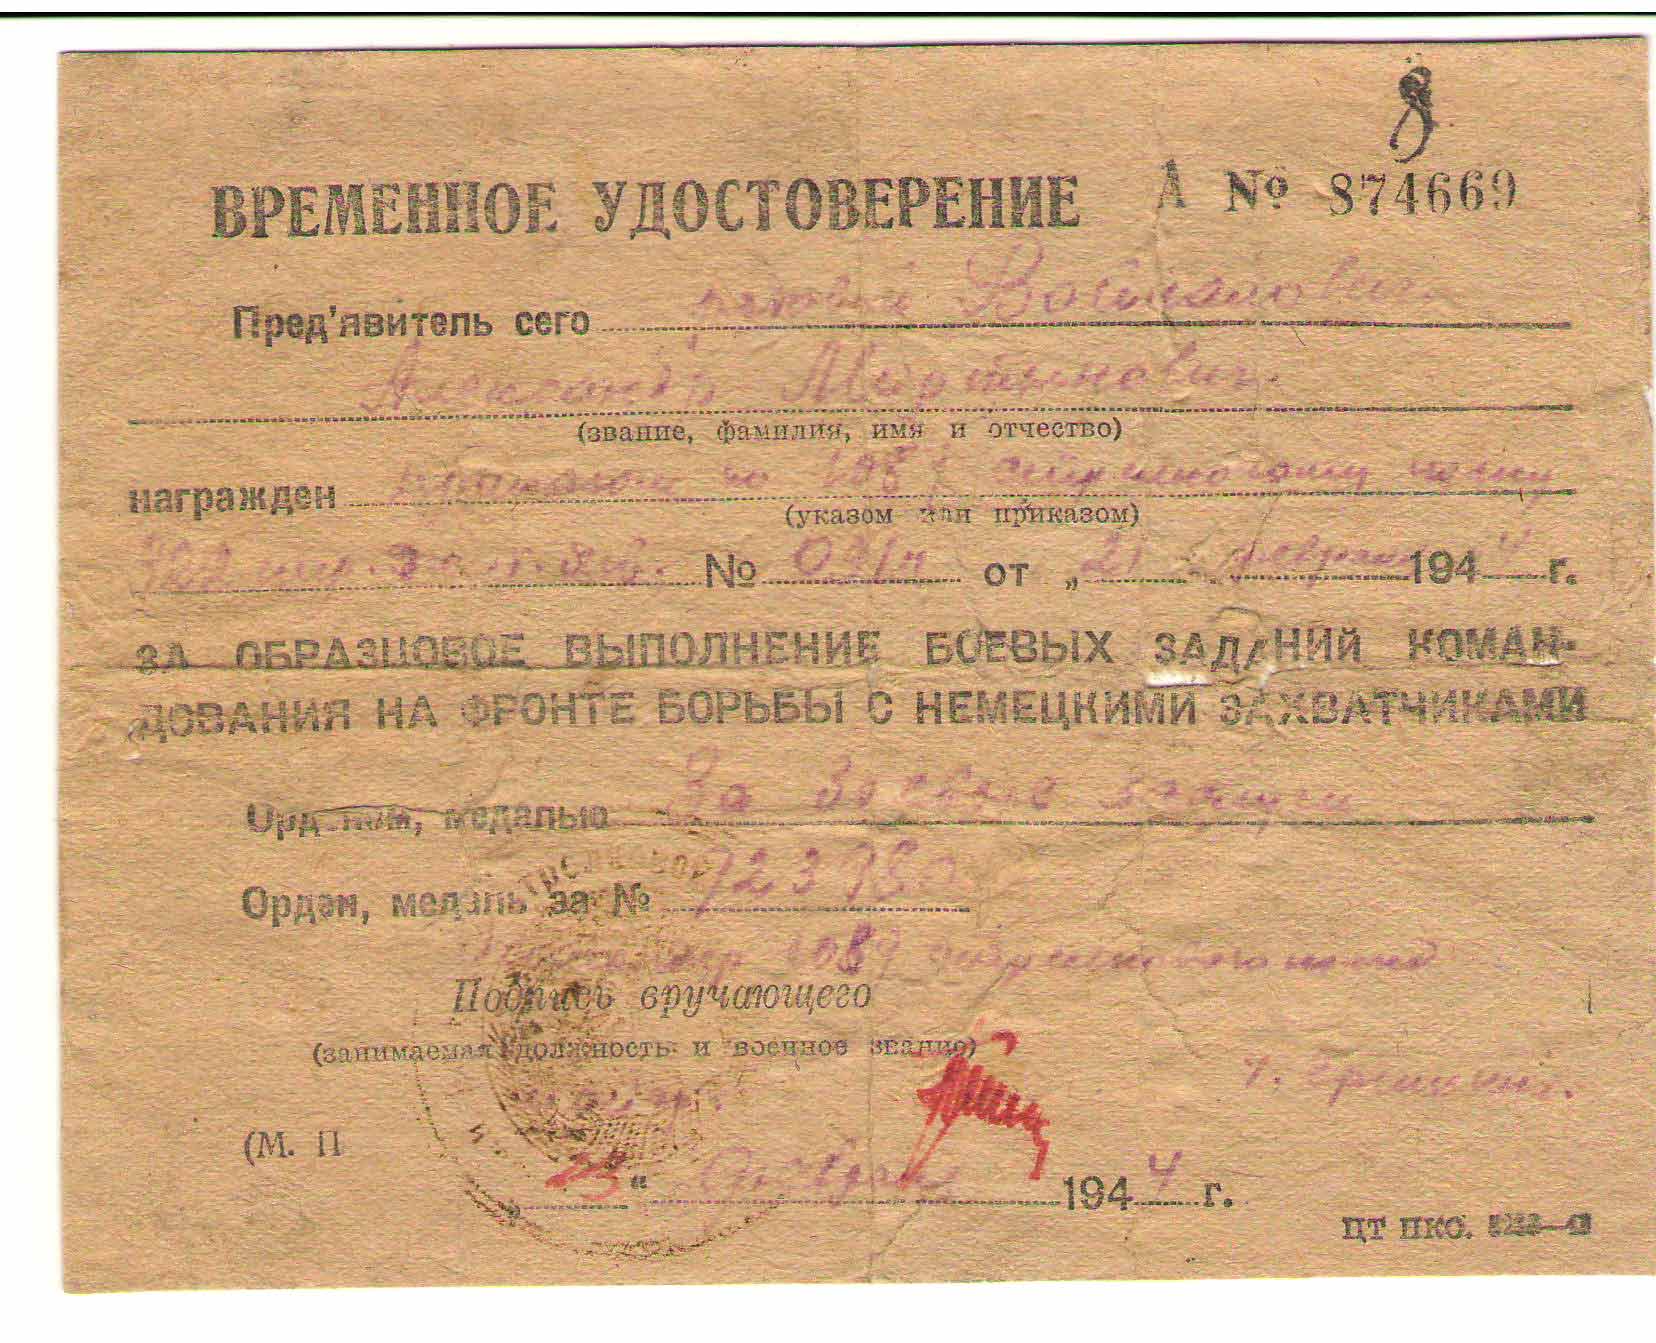 8
ВРЕМЕННОЕ УДОСТОВЕРЕНИЕ А № 874669
Пред'явитель сего рядовой
Александр Мартынович
(звание, фамилия, имя и отчество)
награжден приказом по 1087 стрелковому полку
(указом или приказом)
№ от „21 февраля 1944 г.
ЗА ОБРАЗЦОВОЕ ВЫПОЛНЕНИЕ БОЕВЫХ ЗАДАНИЙ КОМАН-
ДОВАНИЯ НА ФРОНТЕ БОРЬБЫ С НЕМЕЦКИМИ ЗАХВАТЧИКАМИ
Орденом, медалью За боевые заслуги
Орден, медаль за №
Командир 1087 стрелкового полка
Подпись вручающего
(занимаемая должность и военное звание)
майор.
(М. П
„25“ февраля 1944 г.
ЦТ НКО.